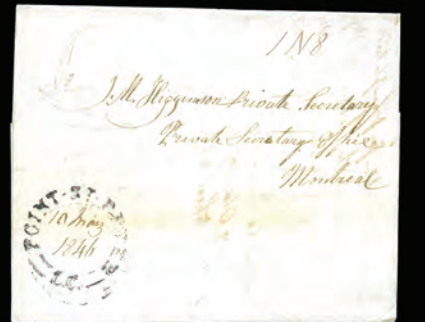 1N8
J.M. Higginson Private Secretary
Private Secretarys Office
Montreal
POINT-ST. PETER
10 May
1846
L.C.